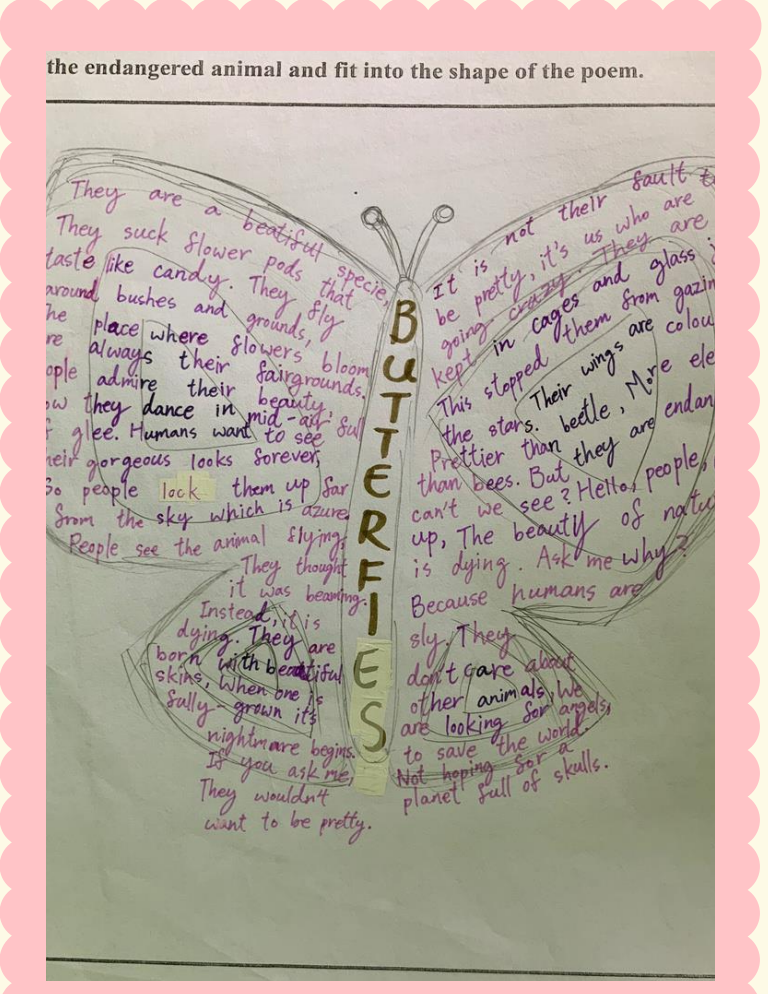 the endangered animal and fit into the shape of the poem.
They are a beatiful specie,
They suck flower pods that
taste like candy. They fly
around bushes and grounds,
place where flowers bloom
always their fairgrounds,
admire their beauty,
they dance in mid-air
glee. Humans want to see
gorgeous looks forever,
So people lock them up far
from the sky which is azure.
People see the animal flying,
They thought
it was beaming.
Instead, it is
dying. They are
born with beautiful
skins, When one is
fully-grown it's
nightmare begins.
If you ask me,
They wouldn't
want to be pretty.
BUTTERFIES
It is not their fault
be pretty, it's us who are
going crazy. They are
kept in cages and glass
This stopped them from
the stars. Their wings are
Prettier than beetle, More
than bees. But they are
can't we see? Hello, people,
up, The beauty of
is dying. Ask me why?
Because humans are
sly. They
don't care about
other animals, We
are looking for angels,
to save the world.
Not hoping for a
planet full of skulls.